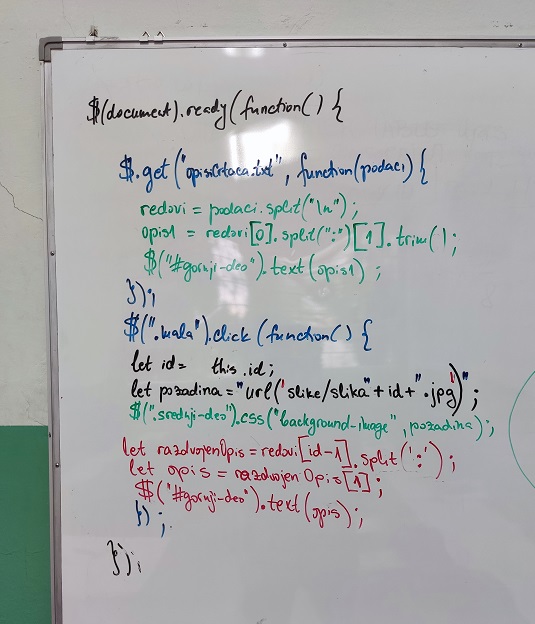 $(document).ready(function() {
$.get("opisiCrtaca.txt", function(podaci) {
redovi = podaci.split("\n");
opis1 = redovi[0].split(":")[1].trim();
$("#gornji-deo").text(opis1);
});
$(".mala").click(function() {
let id= this.id;
let pozadina="url('slike/slika"+id+".jpg')";
$(".srednji-deo").css("background-image", pozadina);
let razdvojenOpis=redovi[id-1].split(':');
let opis = razdvojenOpis[1];
$("#gornji-deo").text(opis);
});
});